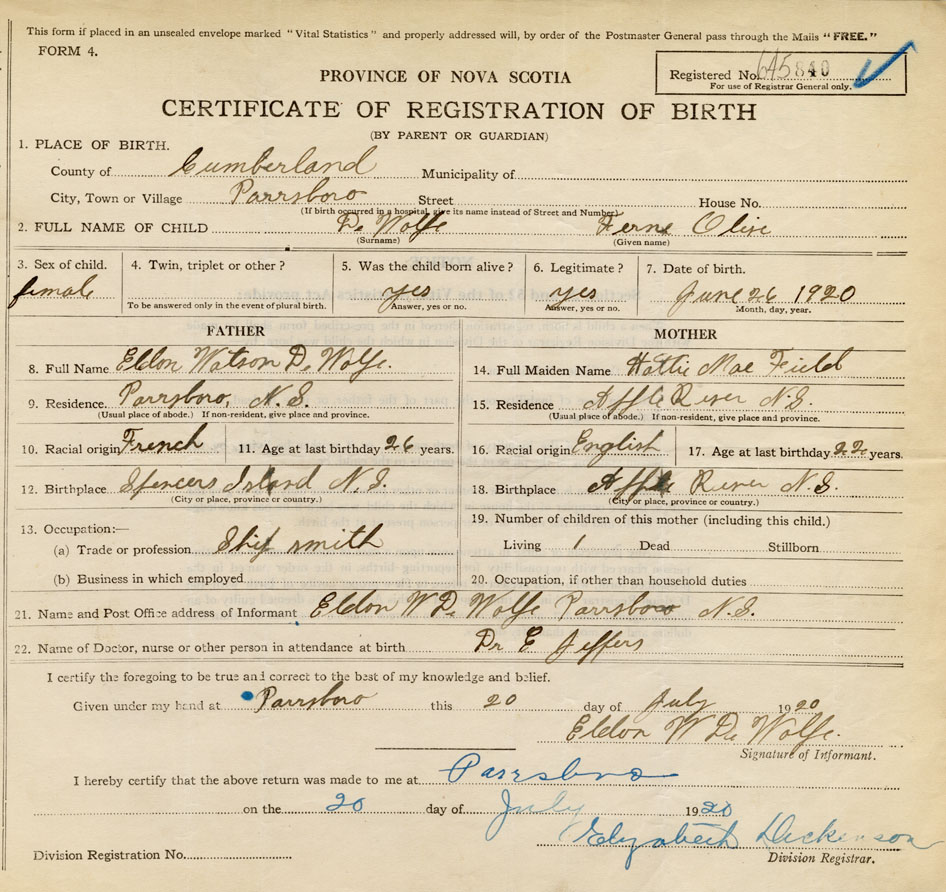 This form if placed in an unsealed envelope marked "Vital Statistics" and properly addressed will, by order of the Postmaster General pass through the Mails "FREE."
FORM 4.
Registered No. 645840
For use of Registrar General only.
PROVINCE OF NOVA SCOTIA
CERTIFICATE OF REGISTRATION OF BIRTH
(BY PARENT OR GUARDIAN)
1. PLACE OF BIRTH.
County of Cumberland Municipality of
City, Town or Village Parrsboro Street House No.
(If birth occurred in a hospital, give its name instead of Street and Number)
2. FULL NAME OF CHILD De Wolfe Ferne Olive
(Surname) (Given name)
3. Sex of child. 4. Twin, triplet or other? 5. Was the child born alive? 6. Legitimate? 7. Date of birth.
female yes yes June 26 1920
To be answered only in the event of plural birth. Answer, yes or no. Answer, yes or no. Month, day, year.
FATHER
8. Full Name Eldon Watson De Wolfe.
9. Residence Parrsboro, N.S.
(Usual place of abode.) If non-resident, give place and province.
10. Racial origin French 11. Age at last birthday 26 years.
12. Birthplace Spencers Island N.S.
(City or place, province or country.)
13. Occupation:—
(a) Trade or profession Ship smith
(b) Business in which employed
MOTHER
14. Full Maiden Name Hattie Mae Field
15. Residence Apple River N.S.
(Usual place of abode.) If non-resident, give place and province.
16. Racial origin English 17. Age at last birthday 22 years.
18. Birthplace Apple River N.S.
(City or place, province or country.)
19. Number of children of this mother (including this child.)
Living 1 Dead Stillborn
20. Occupation, if other than household duties
21. Name and Post Office address of Informant Eldon W De Wolfe Parrsboro N.S.
22. Name of Doctor, nurse or other person in attendance at birth Dr E Jeffers
I certify the foregoing to be true and correct to the best of my knowledge and belief.
Given under my hand at Parrsboro this 20 day of July 1920
Eldon W De Wolfe.
Signature of Informant.
I hereby certify that the above return was made to me at Parrsboro
on the 20 day of July 1920
Elizabeth Dickinson
Division Registration No. Division Registrar.